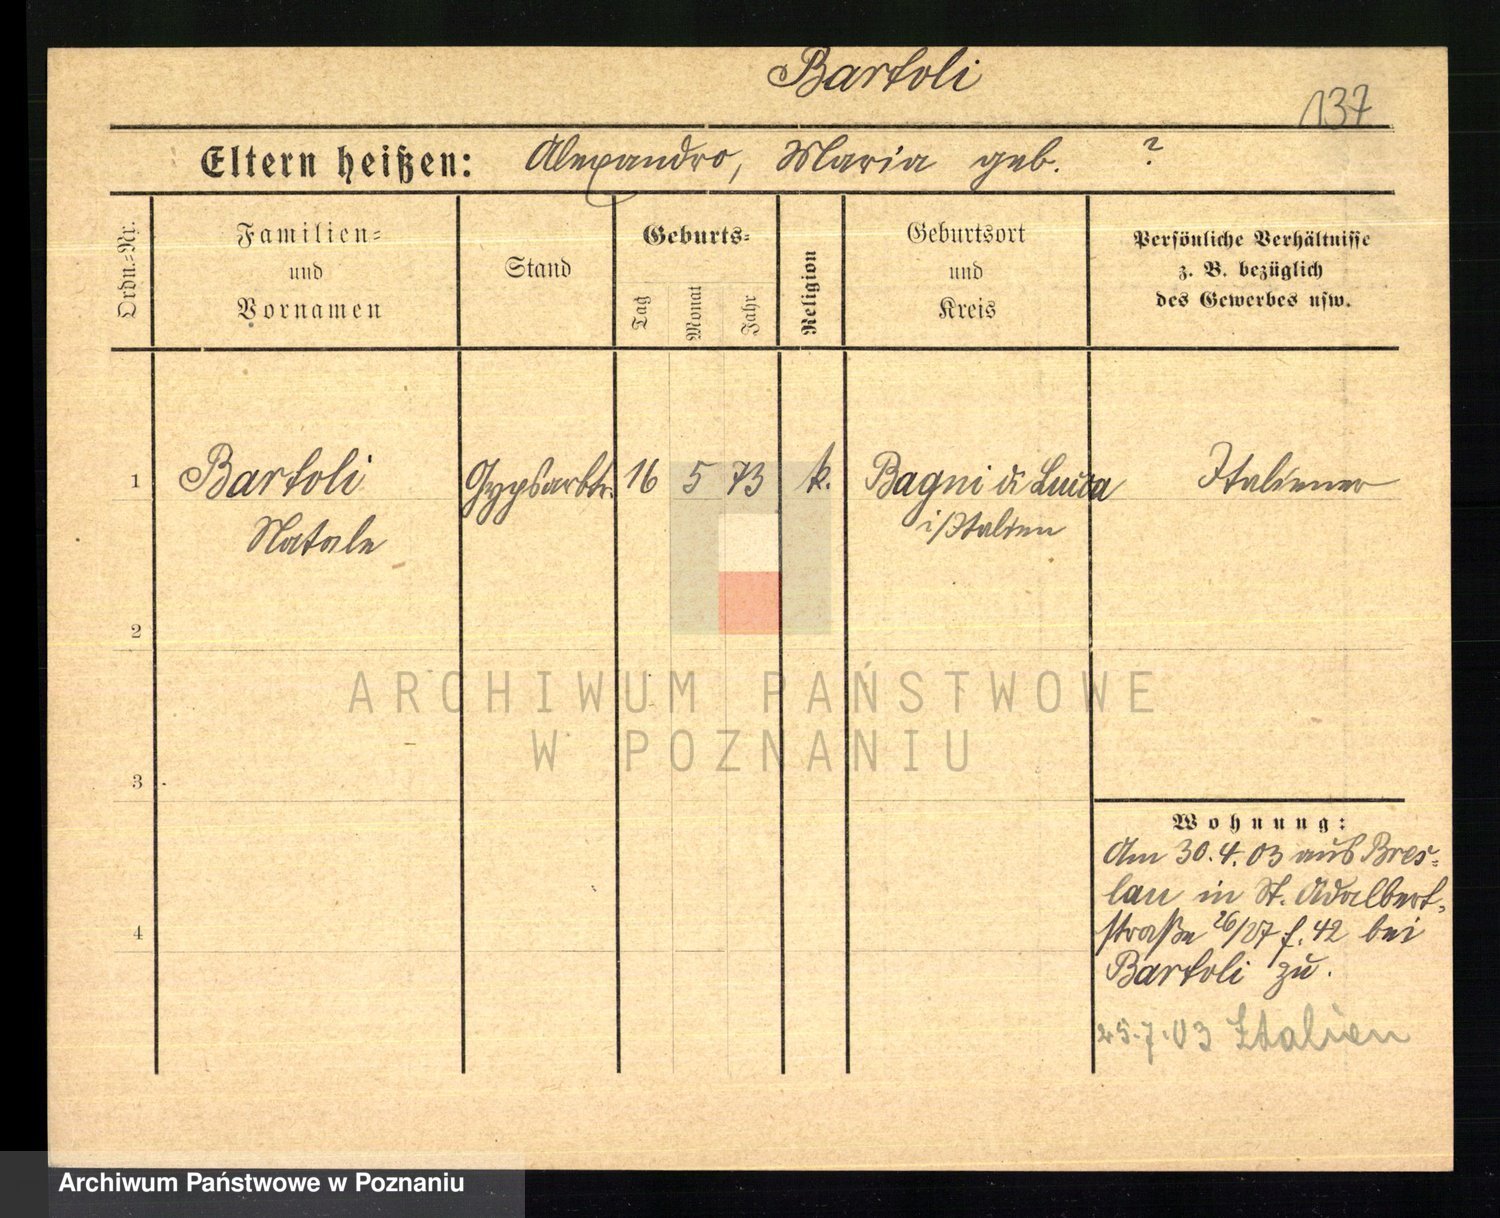 Bartoli
137
Eltern heißen: Alexandro, Maria geb. ?
Ordn.-Nr.
Familien-
und
Vornamen
Stand
Geburts-
Tag
Monat
Jahr
Religion
Geburtsort
und
Kreis
Persönliche Verhältnisse
z. B. bezüglich
des Gewerbes usw.
1 Bartoli Gypsarbtr. 16 5 73 k. Bagni di Lucca Italiener
Natale i/Italien
2
ARCHIWUM PAŃSTWOWE
W POZNANIU
3
Wohnung:
Am 30.4.03 aus Bres-
lau in St. Adalbert-
4
straße 26/27 f. 42 bei
Bartoli zu.
25.7.03 Italien
Archiwum Państwowe w Poznaniu